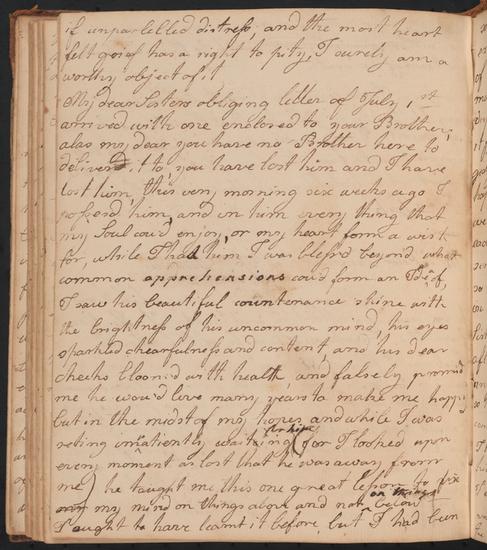 if unparrelelled distress, and the most heart
felt greif has a right to pity, I surely am a
worthy object of it
My dear Sisters obliging letter of July 1st
arrived with one enclosed to your Brother,
alas my dear you have no Brother here to
deliver it to, you have lost him and I have
lost him, this very morning six weeks ago I
possess'd him, and in him every thing that
my Soul cou'd enjoy, or my heart form a wish
for, while I had him I was bless'd beyond what
common apprehensions could form an Idea of,
I saw his beautiful countenance shine with
the brightness of his uncommon mind, his eyes
sparkled chearfulness and content, and his dear
cheeks bloom'd with health, and falsely promis'd
me he wou'd live many years to make me happy
but in the midst of my hopes, and while I was
impatiently waiting for him (for I look'd upon
every moment as lost that he was away from
me) he taught me this one great lesson to fix
my mind on things above and not on things below
I ought to have learnt it before, but I had been